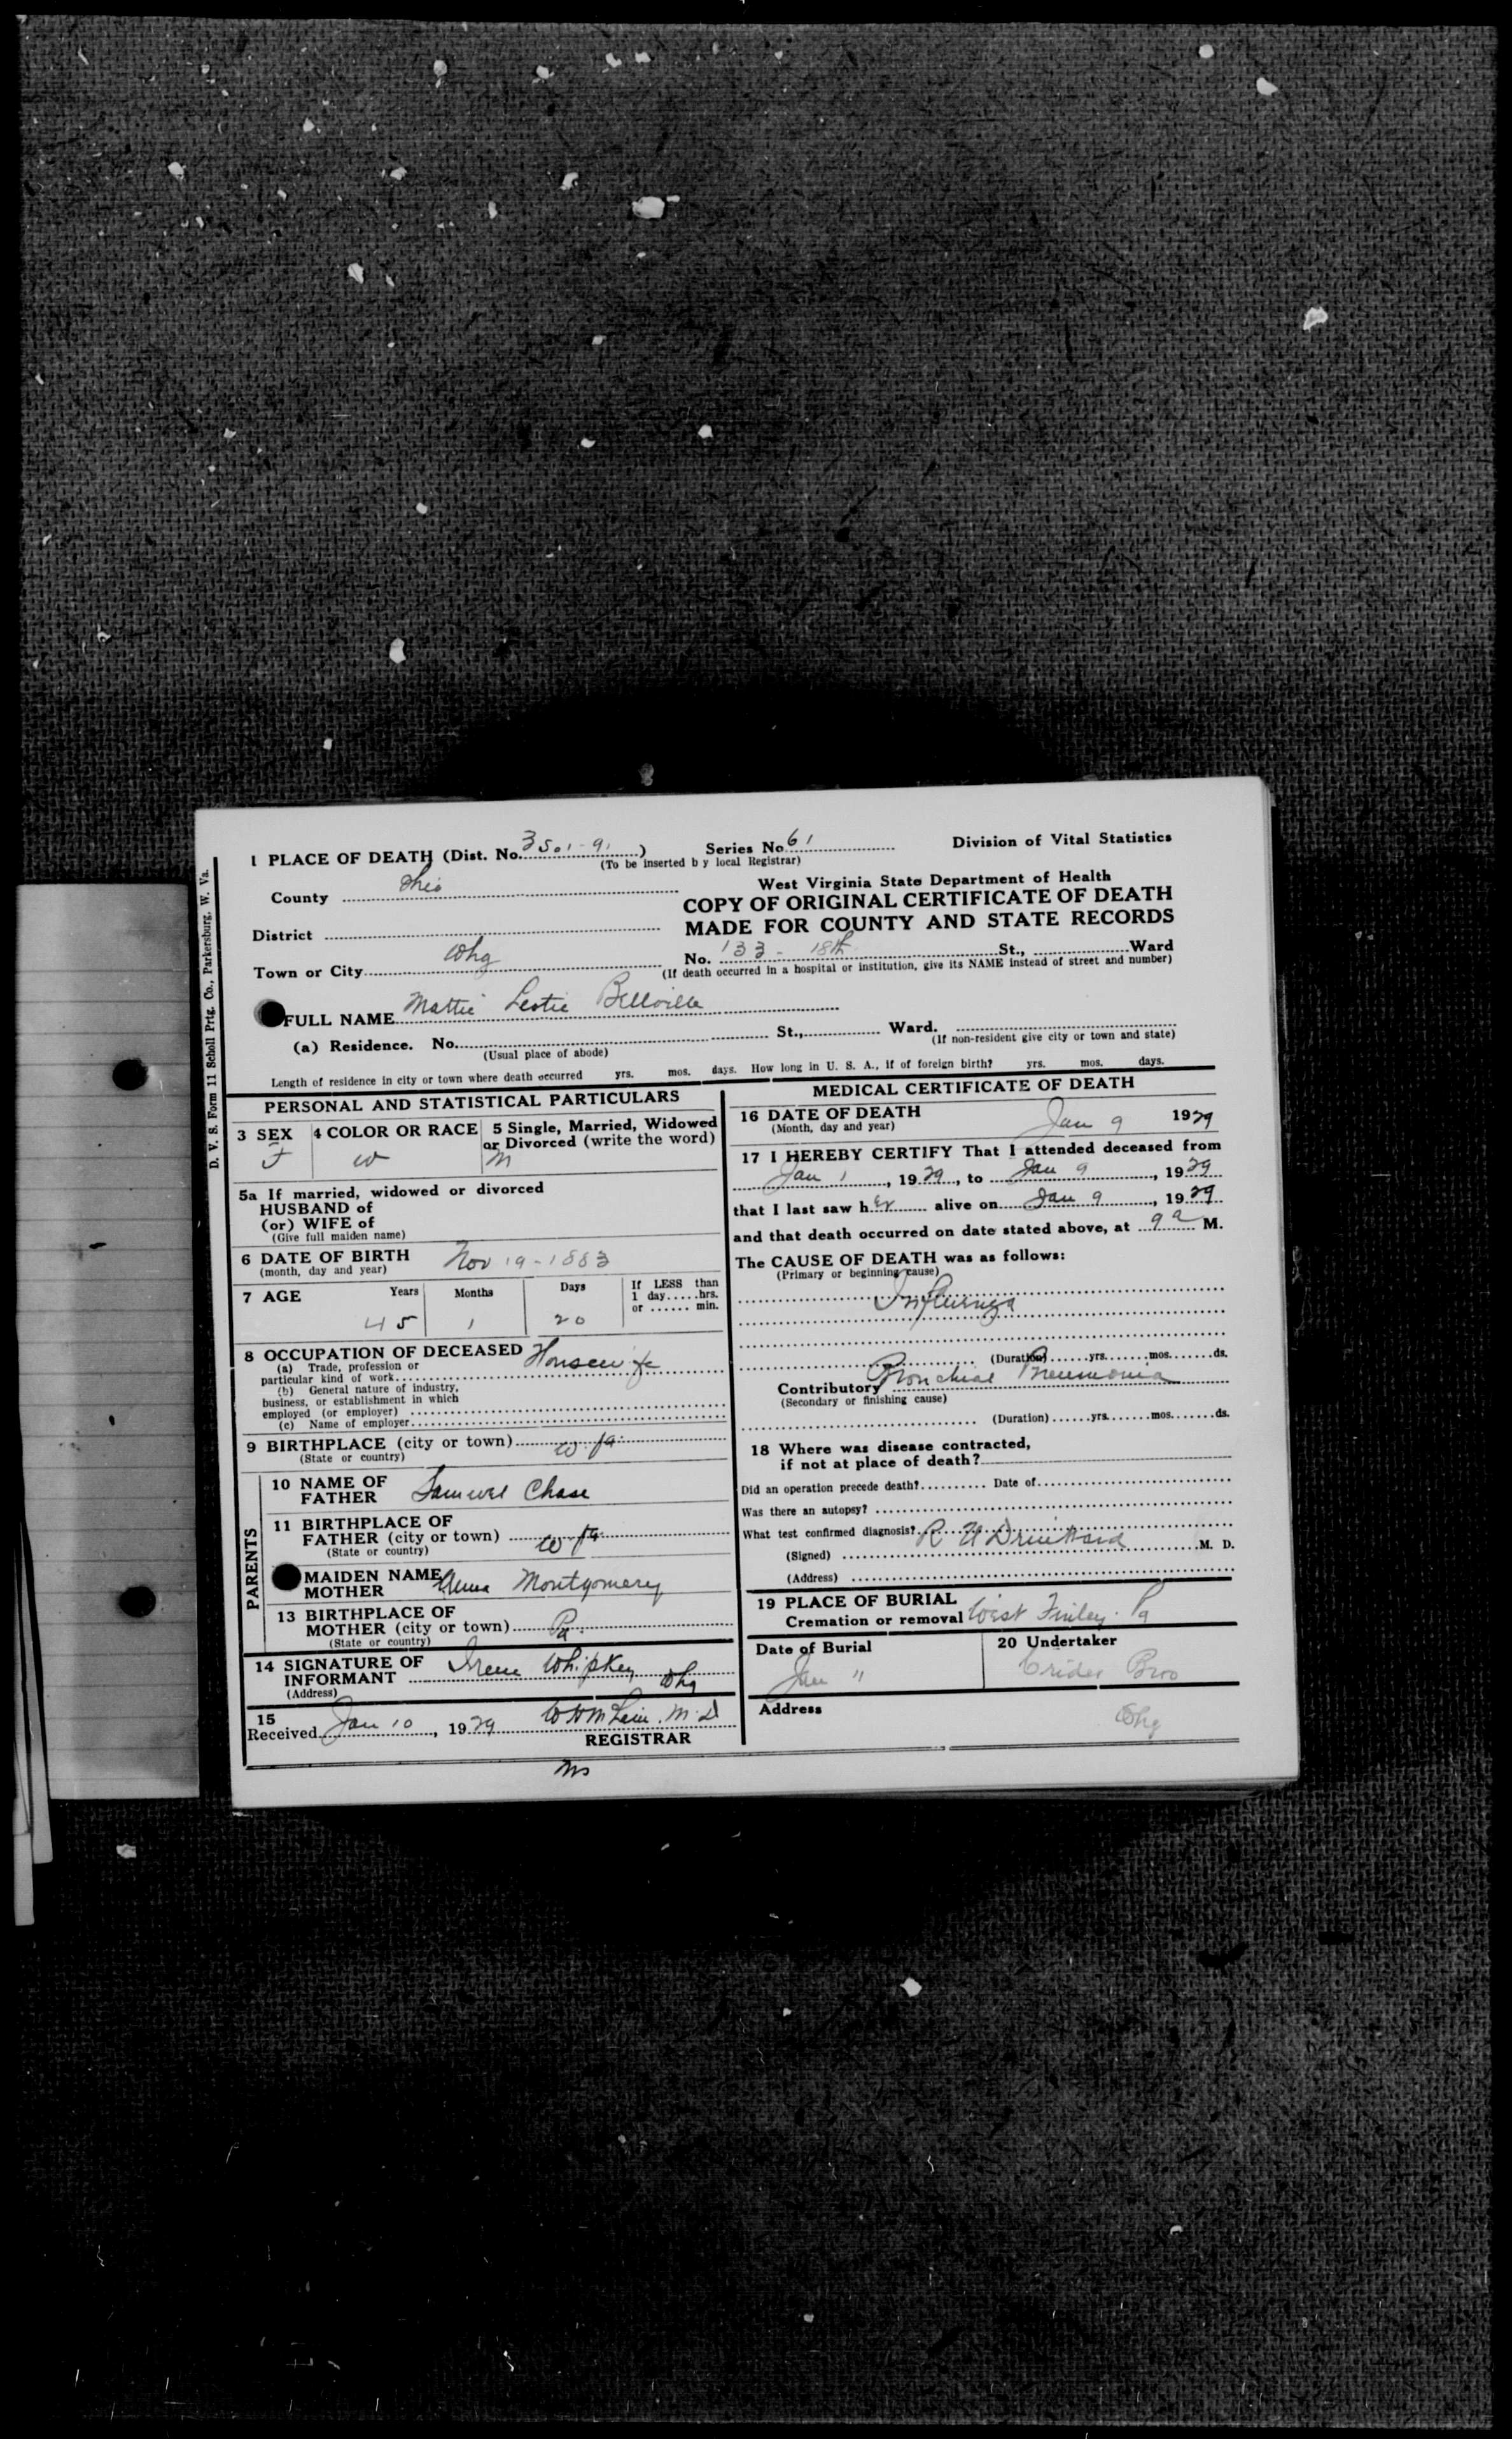 D. V. S. Form 11 Scholl Prtg. Co., Parkersburg, W. Va.
1 PLACE OF DEATH (Dist. No. 3501-91 ) Series No. 61 Division of Vital Statistics
(To be inserted by local Registrar)
County Ohio
West Virginia State Department of Health
COPY OF ORIGINAL CERTIFICATE OF DEATH
MADE FOR COUNTY AND STATE RECORDS
District
Town or City Whg No. 133 - 18th St., Ward
(If death occurred in a hospital or institution, give its NAME instead of street and number)
FULL NAME Mattie Bellville
(a) Residence. No. St., Ward.
(Usual place of abode) (If non-resident give city or town and state)
Length of residence in city or town where death occurred yrs. mos. days. How long in U. S. A., if of foreign birth? yrs. mos. days.
PERSONAL AND STATISTICAL PARTICULARS
3 SEX 4 COLOR OR RACE 5 Single, Married, Widowed
or Divorced (write the word)
F W M
5a If married, widowed or divorced
HUSBAND of
(or) WIFE of
(Give full maiden name)
6 DATE OF BIRTH Nov 19-1883
(month, day and year)
7 AGE Years Months Days If LESS than
1 day.....hrs.
or ...... min.
45 1 20
8 OCCUPATION OF DECEASED Housewife
(a) Trade, profession or
particular kind of work
(b) General nature of industry,
business, or establishment in which
employed (or employer)
(c) Name of employer
9 BIRTHPLACE (city or town) W. Va.
(State or country)
PARENTS
10 NAME OF
FATHER Samuel Chase
11 BIRTHPLACE OF
FATHER (city or town) W Va.
(State or country)
MAIDEN NAME
MOTHER Anna Montgomery
13 BIRTHPLACE OF
MOTHER (city or town) Pa.
(State or country)
14 SIGNATURE OF
INFORMANT Irene Whipkey Whg
(Address)
15
Received Jan 10, 1929 M.D
REGISTRAR
MEDICAL CERTIFICATE OF DEATH
16 DATE OF DEATH Jan 9 1929
(Month, day and year)
17 I HEREBY CERTIFY That I attended deceased from
Jan 1, 1929, to Jan 9, 1929
that I last saw her alive on Jan 9, 1929
and that death occurred on date stated above, at 9 a M.
The CAUSE OF DEATH was as follows:
(Primary or beginning cause)
Influenza
(Duration)......yrs.......mos.......ds.
Contributory Bronchial Pneumonia
(Secondary or finishing cause)
(Duration)......yrs.......mos.......ds.
18 Where was disease contracted,
if not at place of death?
Did an operation precede death? Date of
Was there an autopsy?
What test confirmed diagnosis?
(Signed) M. D.
(Address)
19 PLACE OF BURIAL
Cremation or removal West Finley. Pa
Date of Burial 20 Undertaker
Jan 11 Crider Bros
Address Whg